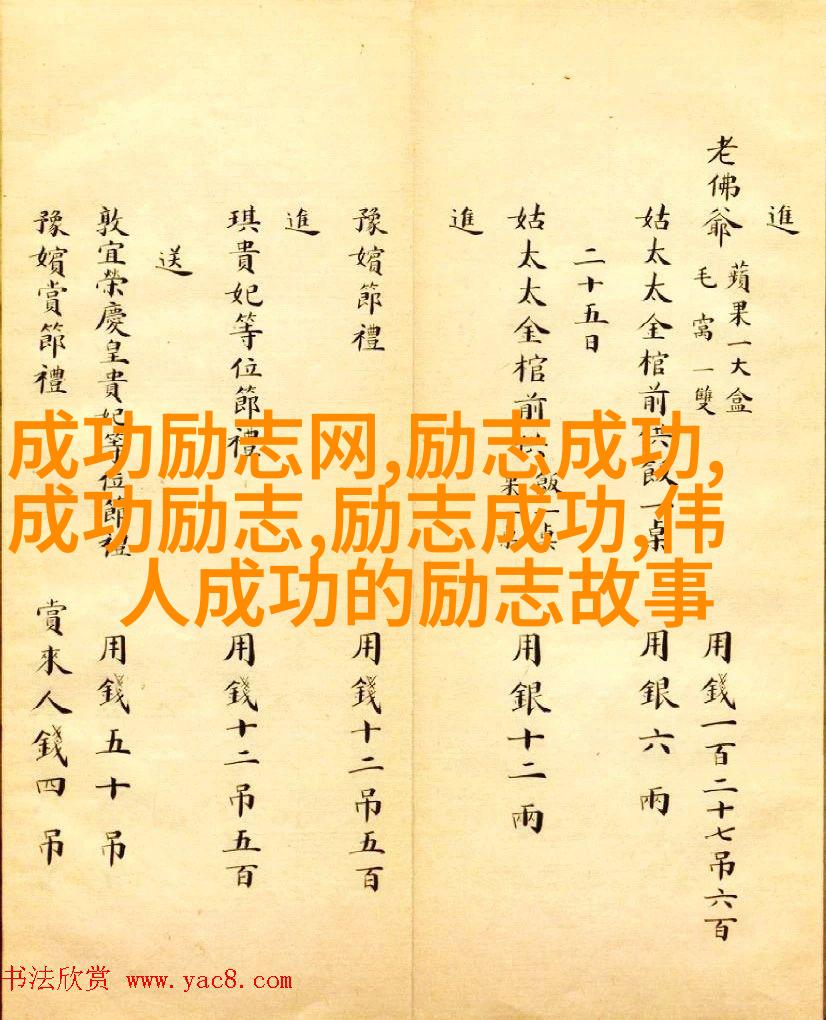 進
老佛爺 蘋果一大盒 毛窩一雙 用錢一百二十七吊六百
姑太太金棺前供飯一桌 用銀六兩
二十五日
姑太太金棺前供飯一桌 用銀十二兩
進
豫嬪節禮 用錢十二吊五百
進
琪貴妃等位節禮 用錢十二吊五百
送
敦宜榮慶皇貴妃等位節禮 用錢五十吊
豫嬪賞節禮 賞來人錢四吊
成功励志网,励志成功,
成功励志,励志成功,伟
人成功的励志故事
书法欣赏 www.yac8.com